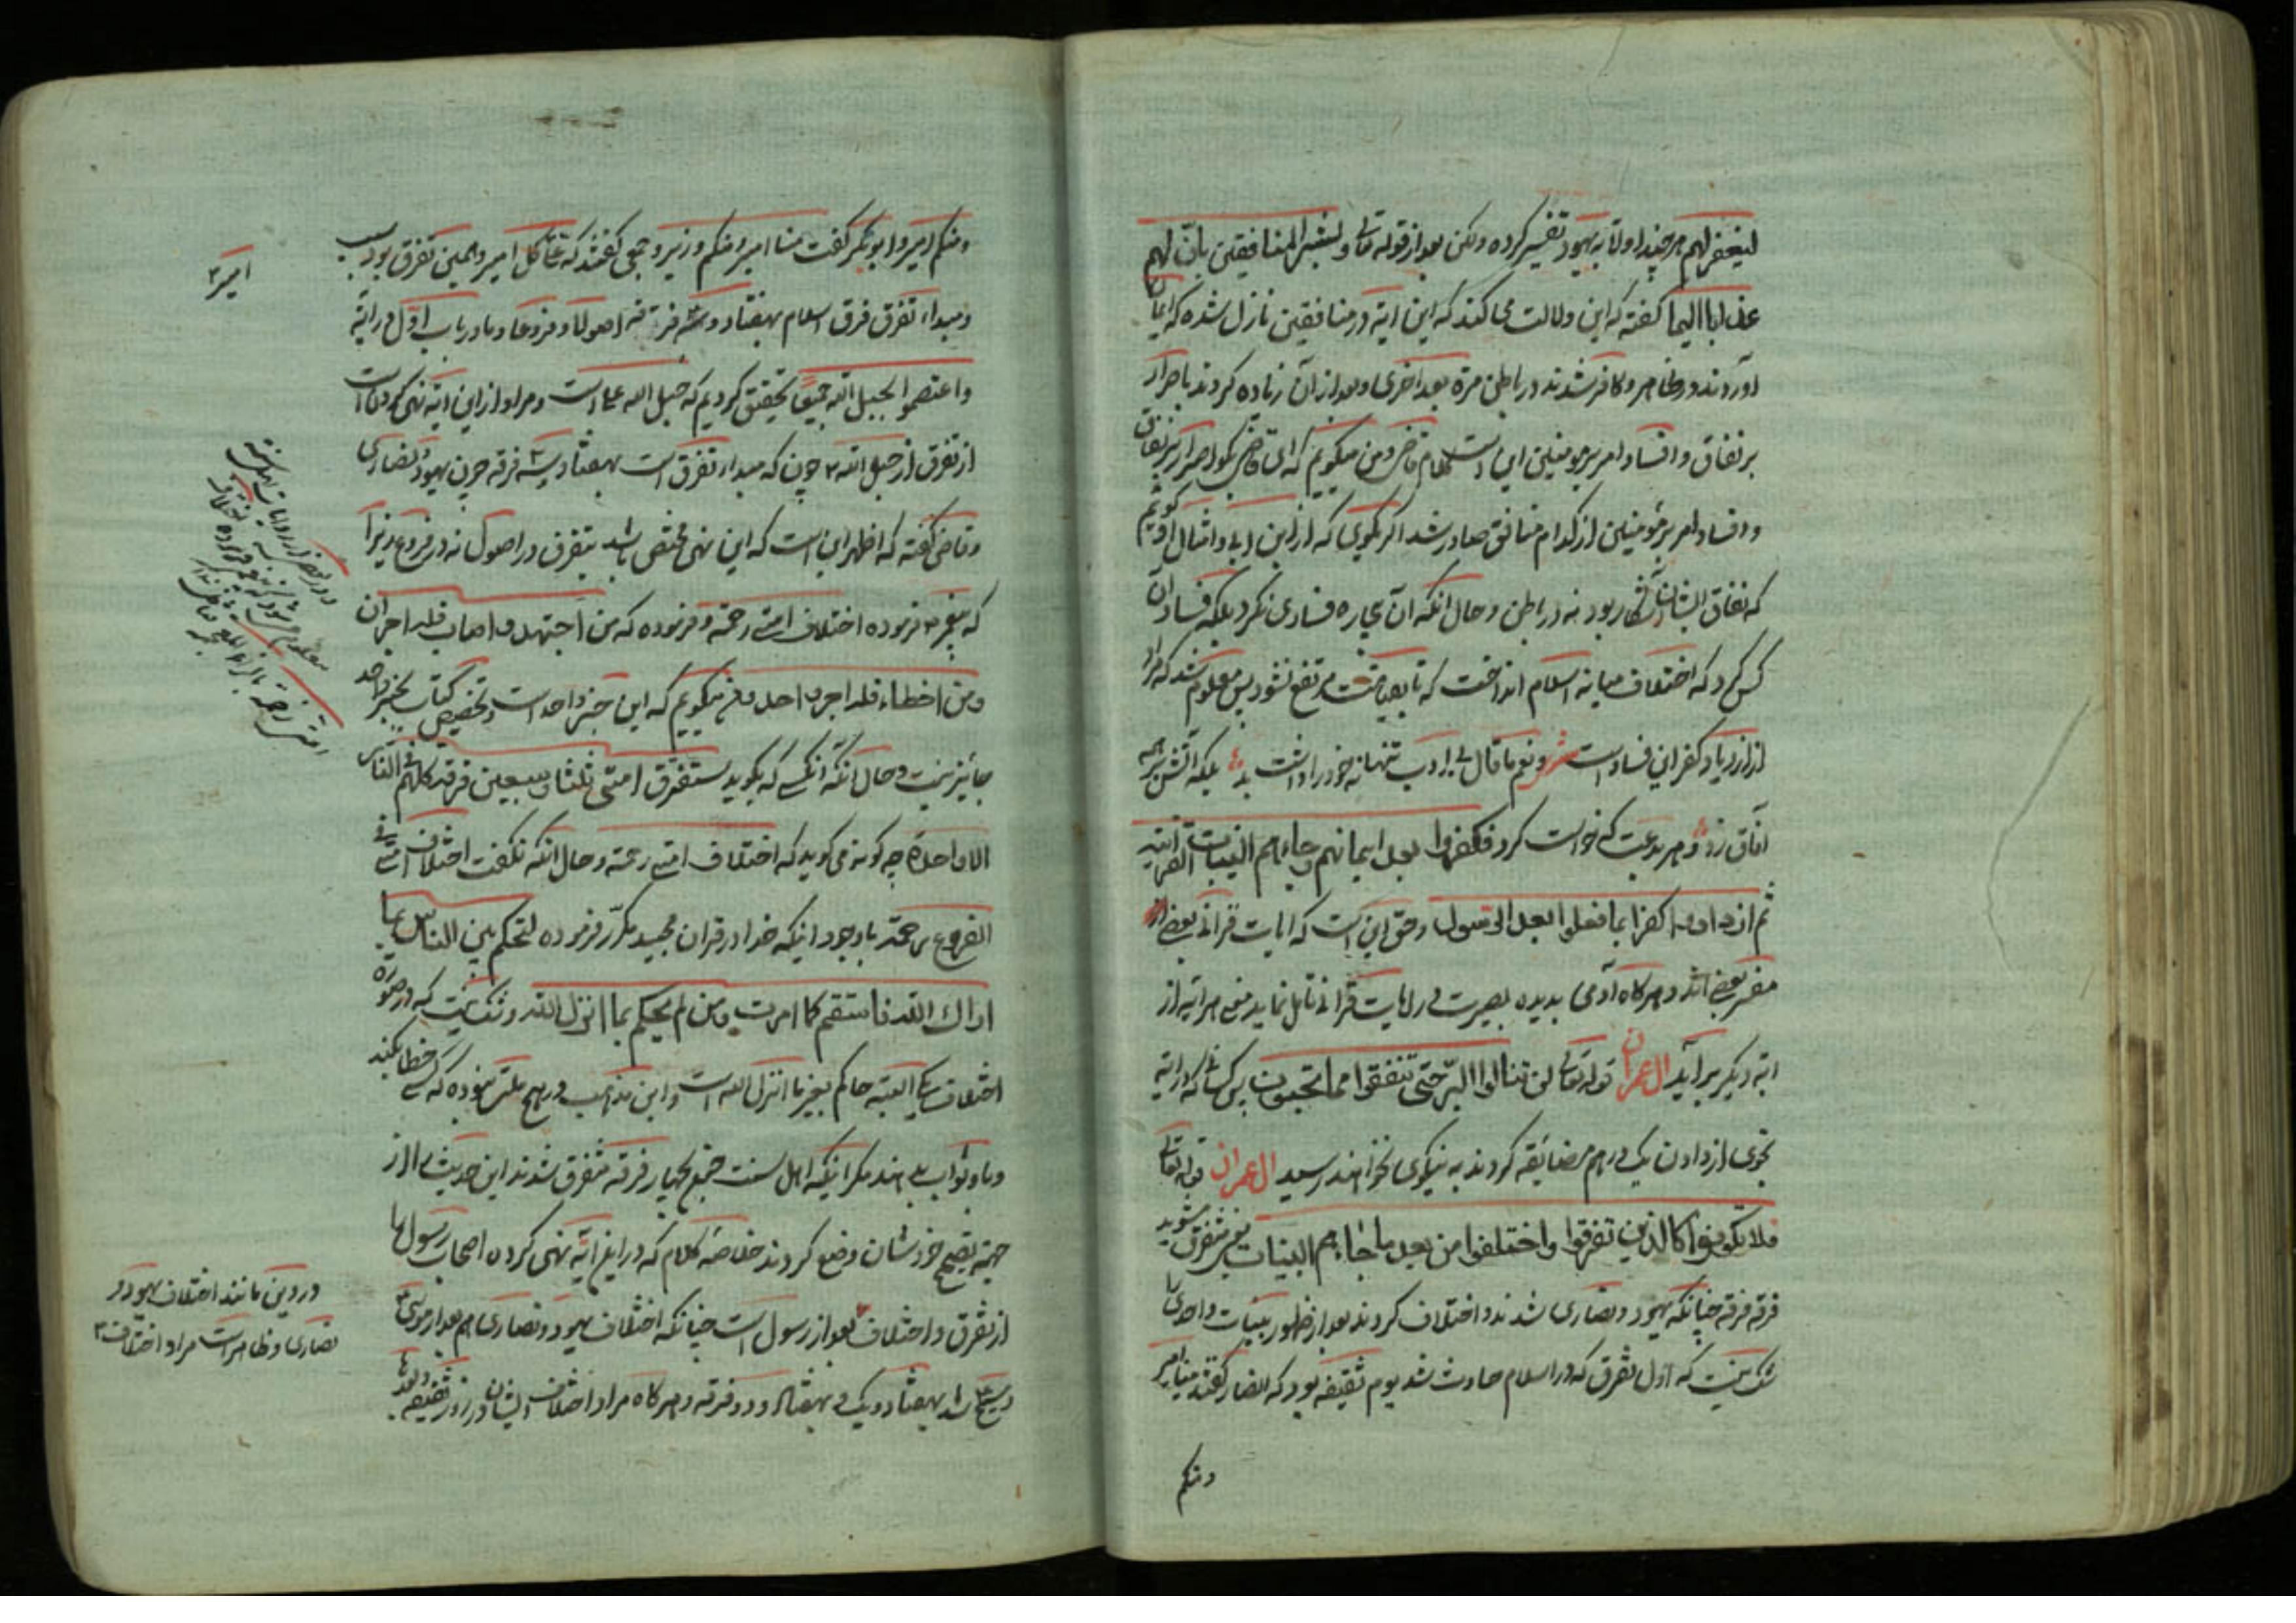 لیغفر لهم هر چند اولا به یهود تفسیر کرده ولکن بعد از قوله تعالی و بشر المنافقین بان لهم
عذابا الیما گفته که این دلالت میکند که این ایة در منافقین نازل شده که ایمان
آوردند در ظاهر و کافر شدند در باطن مرة بعد اخری و بعد از آن زیاده کردند باصرار
بر نفاق و افساد امر بر مومنین این است کلام قاضی و من میگویم که ای قاضی بگو اصرار بر نفاق
و افساد امر بر مؤمنین از کدام منافق صادر شد اگر بگوی که از ابن ابی و امثال او گویم
که نفاق ایشان آشکار بود نه در باطن و حال انکه آن بیچاره فسادی نکرد بلکه فساد آن
کس کرد که اختلاف میانه اسلام انداخت که تا بقیامت مرتفع نشود پس معلوم شد که مراد
از ازدیاد کفر این فساد است شعر و نعم ما قال بی ادب تنها نه خود را داشت بد بلکه آتش بر همه
آفاق زد و هر بدعت که خواست کرد فکفروا بعد ایمانهم و جاءهم البینات القرآنیة
ثم ازدادوا کفرا بما فعلوا بعد الرسول و حق این است که ایات قرآنی بعضی از
مفسر بعضی اند و هر گاه آدمی بدیده بصیرت در ایات قرآنی تامل نماید معنی هر ایه از
ایه دیگر بر آید ال عمران قوله تعالی لن تنالوا البر حتی تنفقوا مما تحبون پس کسانی که در ایة
نجوی از دادن یک درهم مضائقه کردند به نیکوی نخواهند رسید ال عمران قوله تعالی
فلا تکونوا کالذین تفرقوا و اختلفوا من بعد ما جاءهم البینات یعنی متفرق نشوید
فرقه فرقه چنانکه یهود و نصاری شدند و اختلاف کردند بعد از ظهور بینات و احدی را
شک نیست که اول تفرق که در اسلام حادث شد یوم ثقیفه بود که انصار گفتند منا امیر
و منکم
و منکم امیر و ابو بکر گفت منا امیر و منکم وزیر و جمعی گفتند که علی کل امیر و همین تفرق بود سبب
و مبداء تفرق فرق اسلام بهفتاد و سه فرقه اصولا و فروعا و ما در باب اول در ایة
و اعتصموا بحبل الله جمیعا تحقیق کردیم که حبل الله علی است و مراد از این ایة نهی کردن است
از تفرق از حبل الله چون که مبداء تفرق است بهفتاد و سه فرقه چون یهود و نصاری
و قاضی گفته که اظهر این است که این نهی مختص باشد بتفرق در اصول نه در فروع زیرا
که پیغمبر فرموده اختلاف امتی رحمة و فرموده که من اجتهد و اصاب فله اجران
و من اخطاء فله اجر واحد میگویم که این خبر واحد است و تخصیص کتاب بخبر واحد
جایز نیست و حال آنکه آنکسی که بگوید ستفترق امتی ثلثا و سبعین فرقة کلهم فی النار
الا واحدة چه گونه می گوید که اختلاف امتی رحمة و حال انکه نگفت اختلاف امتی فی
الفروع رحمة با وجود اینکه خدا در قران مجید مکرر فرموده لتحکم بین الناس بما
اراک الله فاستقم کما امرت و من لم یحکم بما انزل الله و شک نیست که در صورة
اختلاف یکی البته حاکم بغیر ما انزل الله است و این مذهب در هیچ ملت نبوده که کسی خطا بکند
و باو ثواب بدهند مگر اینکه اهل سنت جمیع بچهار فرقه متفرق شدند این حدیث را از
جهة تصحیح خودشان وضع کردند خلاصه کلام که در این ایة نهی کرده اصحاب رسول را
از تفرق و اختلاف بعد از رسول است چنانکه اختلاف یهود و نصاری هم بعد از موسی
و عیسی شد بهفتاد و یک و بهفتاد و دو فرقه و هر گاه مراد اختلاف ایشان در روز ثقیفه
امیر
در دین مانند اختلاف یهود و
نصاری و ظاهر است مراد اختلاف